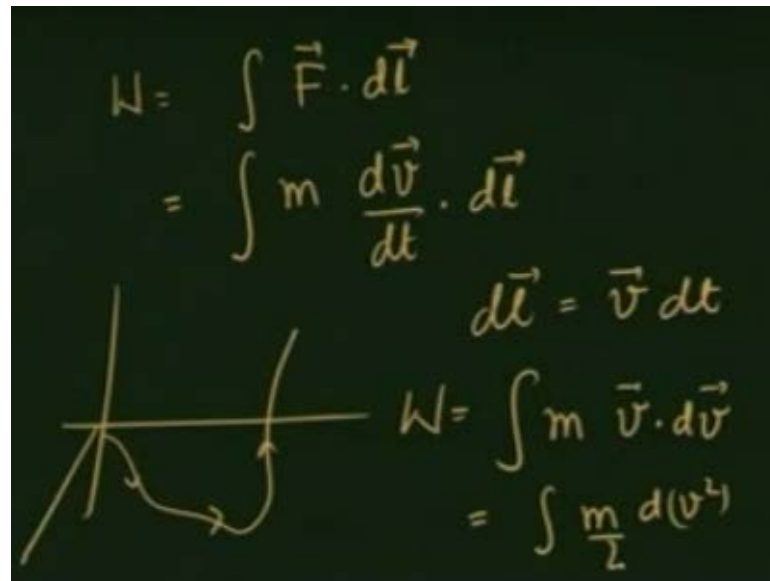 W = ∫ F⃗ · dl⃗
= ∫ m dv⃗/dt · dl⃗
dl⃗ = v⃗ dt
W = ∫ m v⃗ · dv⃗
= ∫ m/2 d(v²)